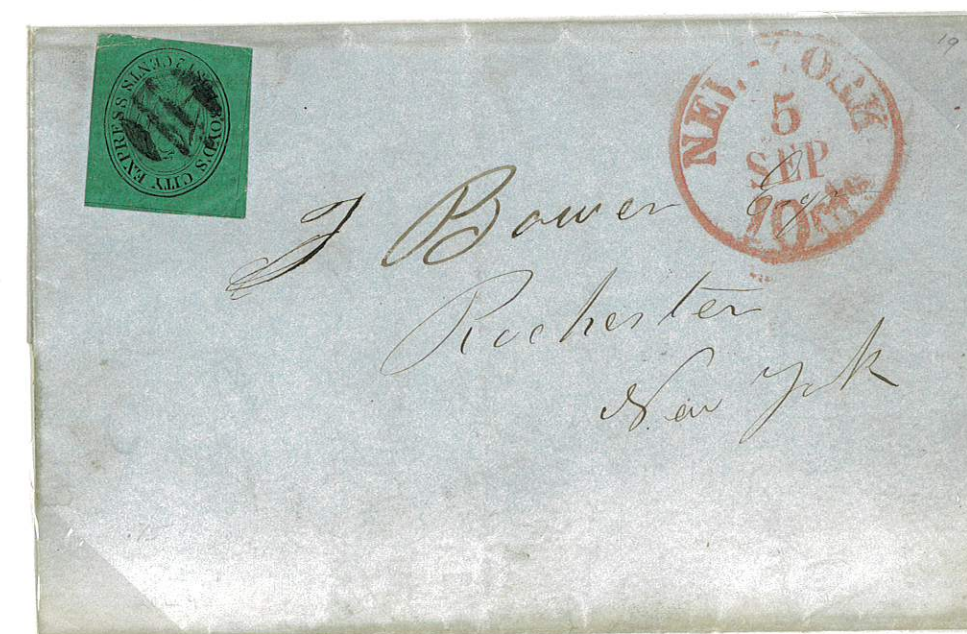 BOYD'S CITY EXPRESS
2 CENTS
NEW-YORK
5
SEP
10cts
19
J Bowen Esqr
Rochester
New York